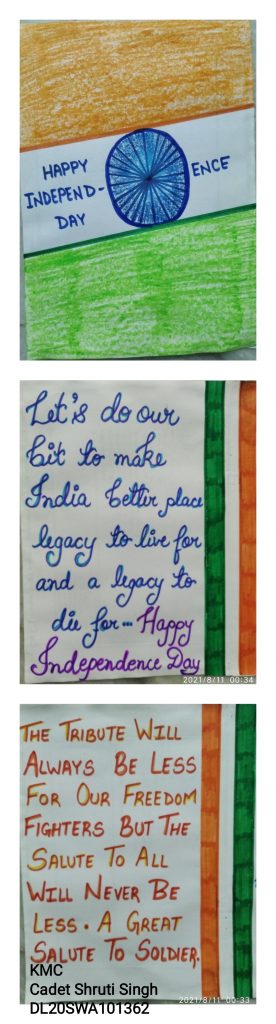 HAPPY
INDEPEND-ENCE
DAY
Let's do our
bit to make
India bettir place
legacy to live for
and a legacy to
die for... Happy
Independence Day
2021/8/11 00:34
THE TRIBUTE WILL
ALWAYS BE LESS
FOR OUR FREEDOM
FIGHTERS BUT THE
SALUTE TO ALL
WILL NEVER BE
LESS. A GREAT
SALUTE TO SOLDIER.
2021/8/11 00:33
KMC
Cadet Shruti Singh
DL20SWA101362